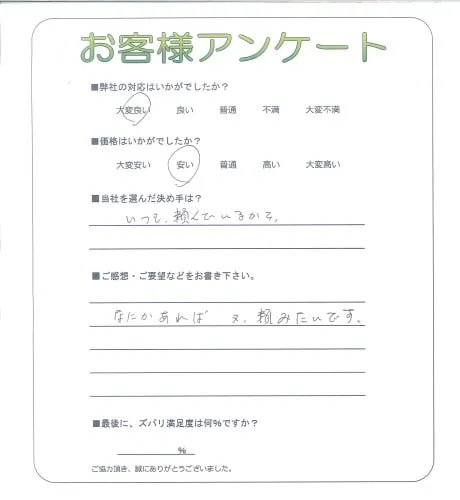 お客様アンケート
■弊社の対応はいかがでしたか？
大変良い 良い 普通 不満 大変不満
■価格はいかがでしたか？
大変安い 安い 普通 高い 大変高い
■当社を選んだ決め手は？
いつも、頼んでいるから、
■ご感想・ご要望などをお書き下さい。
なにかあれば 又、頼みたいです。
■最後に、ズバリ満足度は何％ですか？
％
ご協力頂き、誠にありがとうございました。